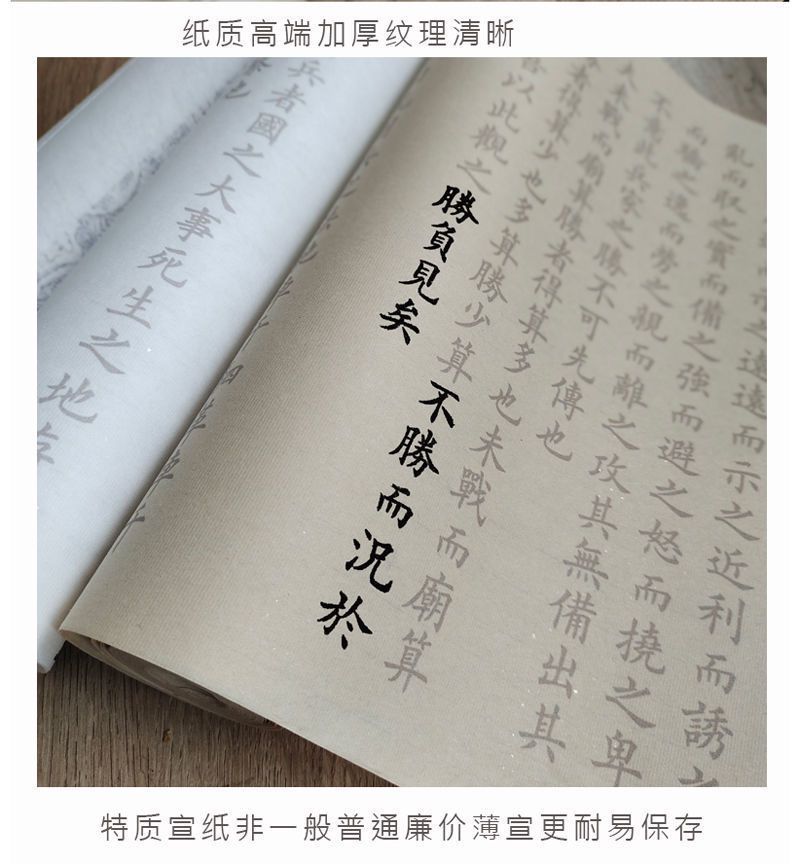 纸质高端加厚纹理清晰
而示之遠遠而示之近利而誘之
亂而取之實而備之強而避之怒而撓之卑
而驕之逸而勞之親而離之攻其無備出其
不意此兵家之勝不可先傳也
夫未戰而廟算勝者得算多也未戰而廟算
者得算少也多算勝少算
不勝而況於
吾以此觀之
勝負見矣
兵者國之大事死生之地存
察也
特质宣纸非一般普通廉价薄宣更耐易保存